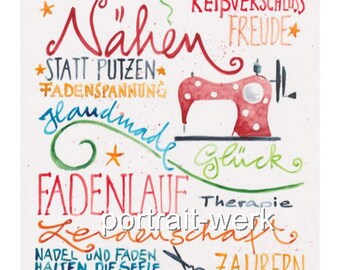 REIßVERSCHLUSS
Nähen
FREUDE
STATT PUTZEN
FADENSPANNUNG
Handmade
Glück
FADENLAUF
Therapie
portrait-werk
Leidenschaft
NADEL UND FADEN
ZAUBERN
HALTEN DIE SEELE